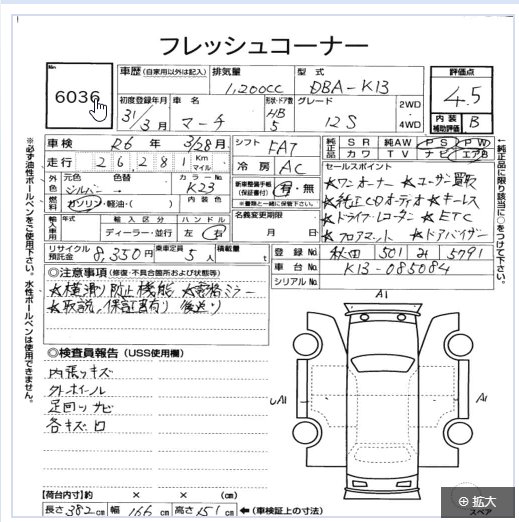 フレッシュコーナー
No.
6036
車歴 (自家用以外は記入)
排気量 1,200CC
型式 DBA-K13
評価点 4.5
内装補助評価 B
初度登録年月 31/3月
車名 マーチ
形状・ドア数 HB 5
グレード 12S
2WD・4WD
車検 R6年 3/28月
シフト FA7
走行 26,281 Km マイル
冷房 AC
純正品 SR 純AW PS PW
カワ TV ナビ エアB
外色 元色 シルバー → 色替
カラーNo. K23
燃料 ガソリン・軽油・( )
内装色
新車整備手帳(保証書付) 有・無
※書類と一緒に保管下さい。
セールスポイント
☆ワンオーナー ☆ユーザー買取
☆純正CDオーディオ ☆キーレス
☆ドライブレコーダー ☆ETC
☆フロアマット ☆ドアバイザー
輸入車用 年式
輸入区分 ディーラー・並行
ハンドル 左 右
名義変更期限 月 日
リサイクル預託金 8,350円
乗車定員 5人
積載量 t
登録No. 秋田 501 5791
車台No. K13-085084
シリアルNo.
◎注意事項 (修復・不具合箇所および状態等)
☆横滑り防止機能
☆取説、保証書有り 後送り
◎検査員報告 (USS使用欄)
内張りキズ
外ホイール
足回りサビ
各キズ
A1
A1
A1
【荷台内寸】約 × × (cm)
長さ 382cm 幅 166cm 高さ 151cm ←(車検証上の寸法)
スペア
拡大
※必ず油性ボールペンをご使用下さい。水性ボールペンは使用できません。
←純正品に限り該当に○をつけて下さい。